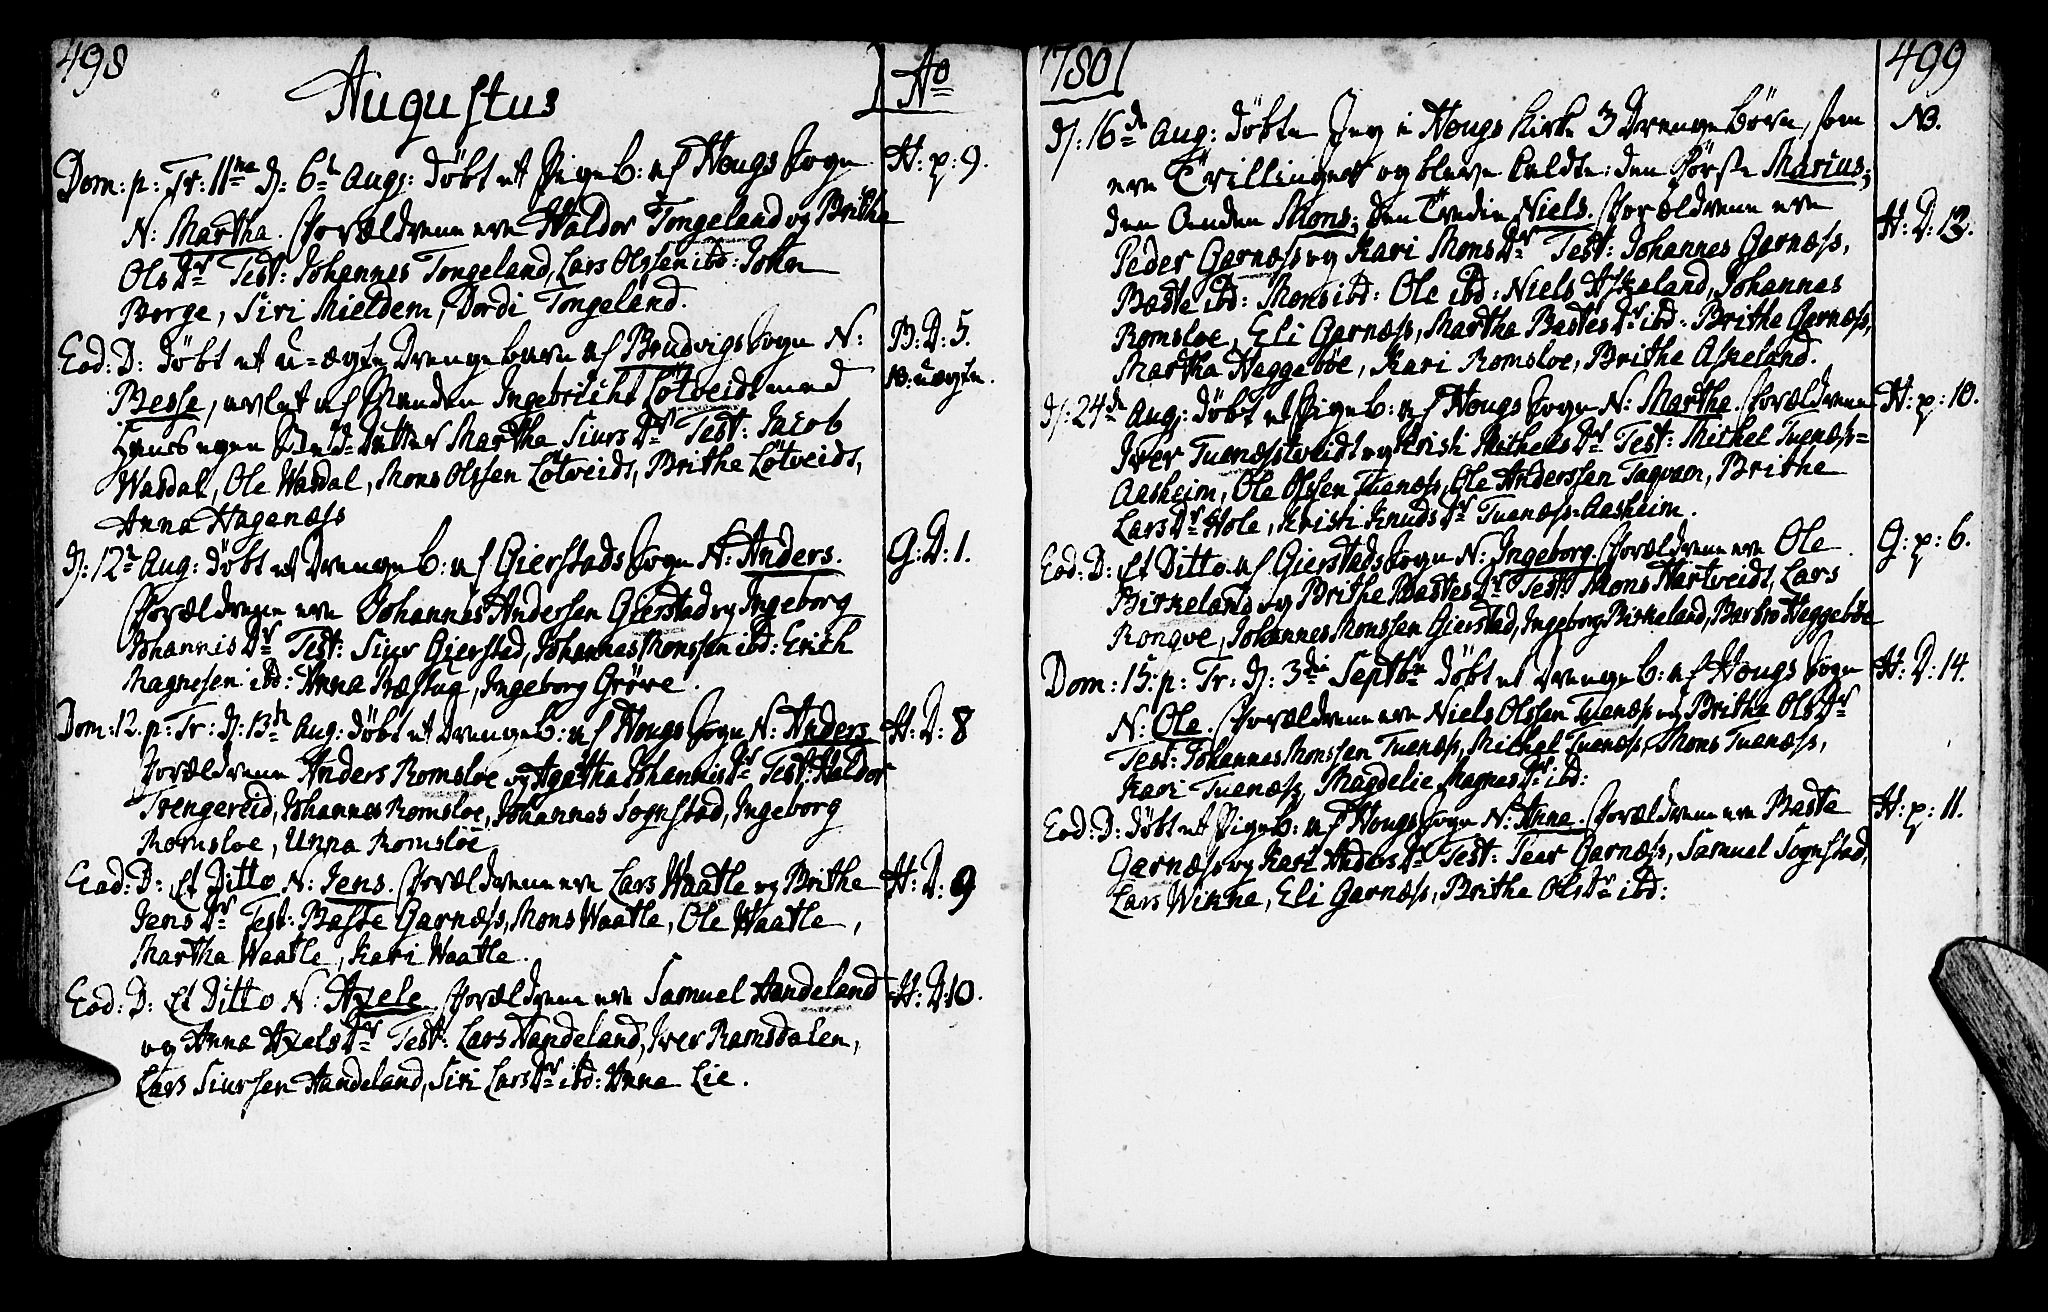 498
Augustus
Ao
Dom: p: Tr: 11na D: 6te Aug: döbt et Pigeb: af Hougs Sogn
H: p: 9.
N: Martha. Forældrene ere Haldor Tongeland og Brithe
Ols Dr Test: Johannes Tongeland, Lars Olssen ibd: John
Borge, Siri Mieldem, Dordi Tongeland.
Eod: D: döbt et u=ægte Drengebarn af Brudvigs Sogn N:
B: D: 5.
NB: uægte.
Besse, avlet af Manden Ingebricht Lötveidt med
Hans egen Sted=Dutter Martha Siurs Dr Test: Jacob
Wasdal, Ole Wasdal, Mons Olssen Lötveidt, Brithe Lötveidt,
Anna Hagenæss
D: 12te Aug: döbt et Drengeb: af Gierstads Sogn N: Anders.
G: D: 1.
Forældrene ere Johannes Andersen Gierstad og Ingeborg
Johannis Dr Test: Siur Gierstad, Johannes Monssen ibd: Erich
Magnesen ibd: Anna Ræstug, Ingeborg Gröve.
Dom: 12. p: Tr: D: 13de Aug: döbt et Drengeb: af Hougs Sogn N: Anders
H: D: 8
Forældrene Anders Romsloe og Agatha Johannis Dr Test: Haldor
Trengereid, Johannes Romsloe, Johannes Sognstad, Ingeborg
Romsloe, Unna Romsloe
Eod: D: Et Ditto N: Jens. Forældrene ere Lars Waatle og Brithe
H: D: 9
Jens Dr Test: Baste Garnæss, Mons Waatle, Ole Waatle,
Martha Waatle, Kari Waatle.
Eod: D: Et Ditto N: Axele. Forældrene ere Samuel Handeland
H: D: 10.
og Anna Axels Dr Test: Lars Handeland, Iver Ramsdalen,
Lars Siurssen Handeland, Siri Lars Dr ibd: Anna Lie.
1780
499
D: 16de Aug: döbte Jeg i Hougs Kirke 3 Drengebörn, som
NB.
ere Trillinger og bleve kaldte: den Förste Marius;
den Anden Mons; den Tredie Niels. Forældrene ere
H: D: 13.
Peder Garnæss og Kari Mons Dr Test: Johannes Garnæss,
Baste ibd: Mons ibd: Ole ibd: Niels Askeland, Johannes
Romsloe, Eli Garnæss, Martha Bastes Dr ibd: Brithe Garnæss,
Martha Haggeböe, Kari Romsloe, Brithe Askeland.
D: 24de Aug: döbt et Pigeb: af Hougs Sogn N: Martha. Forældrene
H: p: 10.
Iver Tuenæstveidt og Kristi Michels Dr Test: Michel Tuenæss=
Aasheim, Ole Olssen Tuenæss, Ole Anderssen Tagvam, Brithe
Lars Dr Hole, Kristi Knuds Dr Tuenæss=Aasheim.
Eod: D: Et Ditto af Gierstads Sogn N: Ingeborg. Forældrene ere Ole
G: p: 6.
Birkeland og Brithe Bastes Dr Test: Mons Hartveidt, Lars
Ronqve, Johannes Monssen Gierstad, Ingeborg Birkeland, Barbro Heggeböe
Dom: 15: p: Tr: D: 3die Septbr döbt et Drengeb: af Hougs Sogn
H: D: 14.
N: Ole. Forældrene ere Niels Olssen Tuenæss og Brithe Ols Dr
Test: Johannes Monssen Tuenæss, Michel Tuenæss, Mons Tuenæss,
Kari Tuenæss, Magdelie Magnes Dr ibd:
Eod: D: döbt et Pigeb: af Hougs Sogn N: Anna. Forældrene ere Baste
H: p: 11.
Garnæss og Kari Anders Dr Test: Pear Garnæss, Samuel Sognstad,
Lars Winne, Eli Garnæss, Brithe Ols Dr ibd: